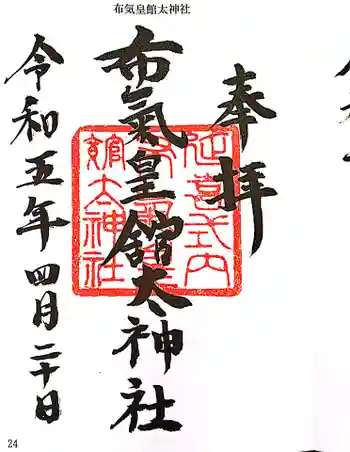 布気皇館太神社
奉拝
布氣皇舘太神社
令和五年四月二十日
延喜式内
館太神社
24